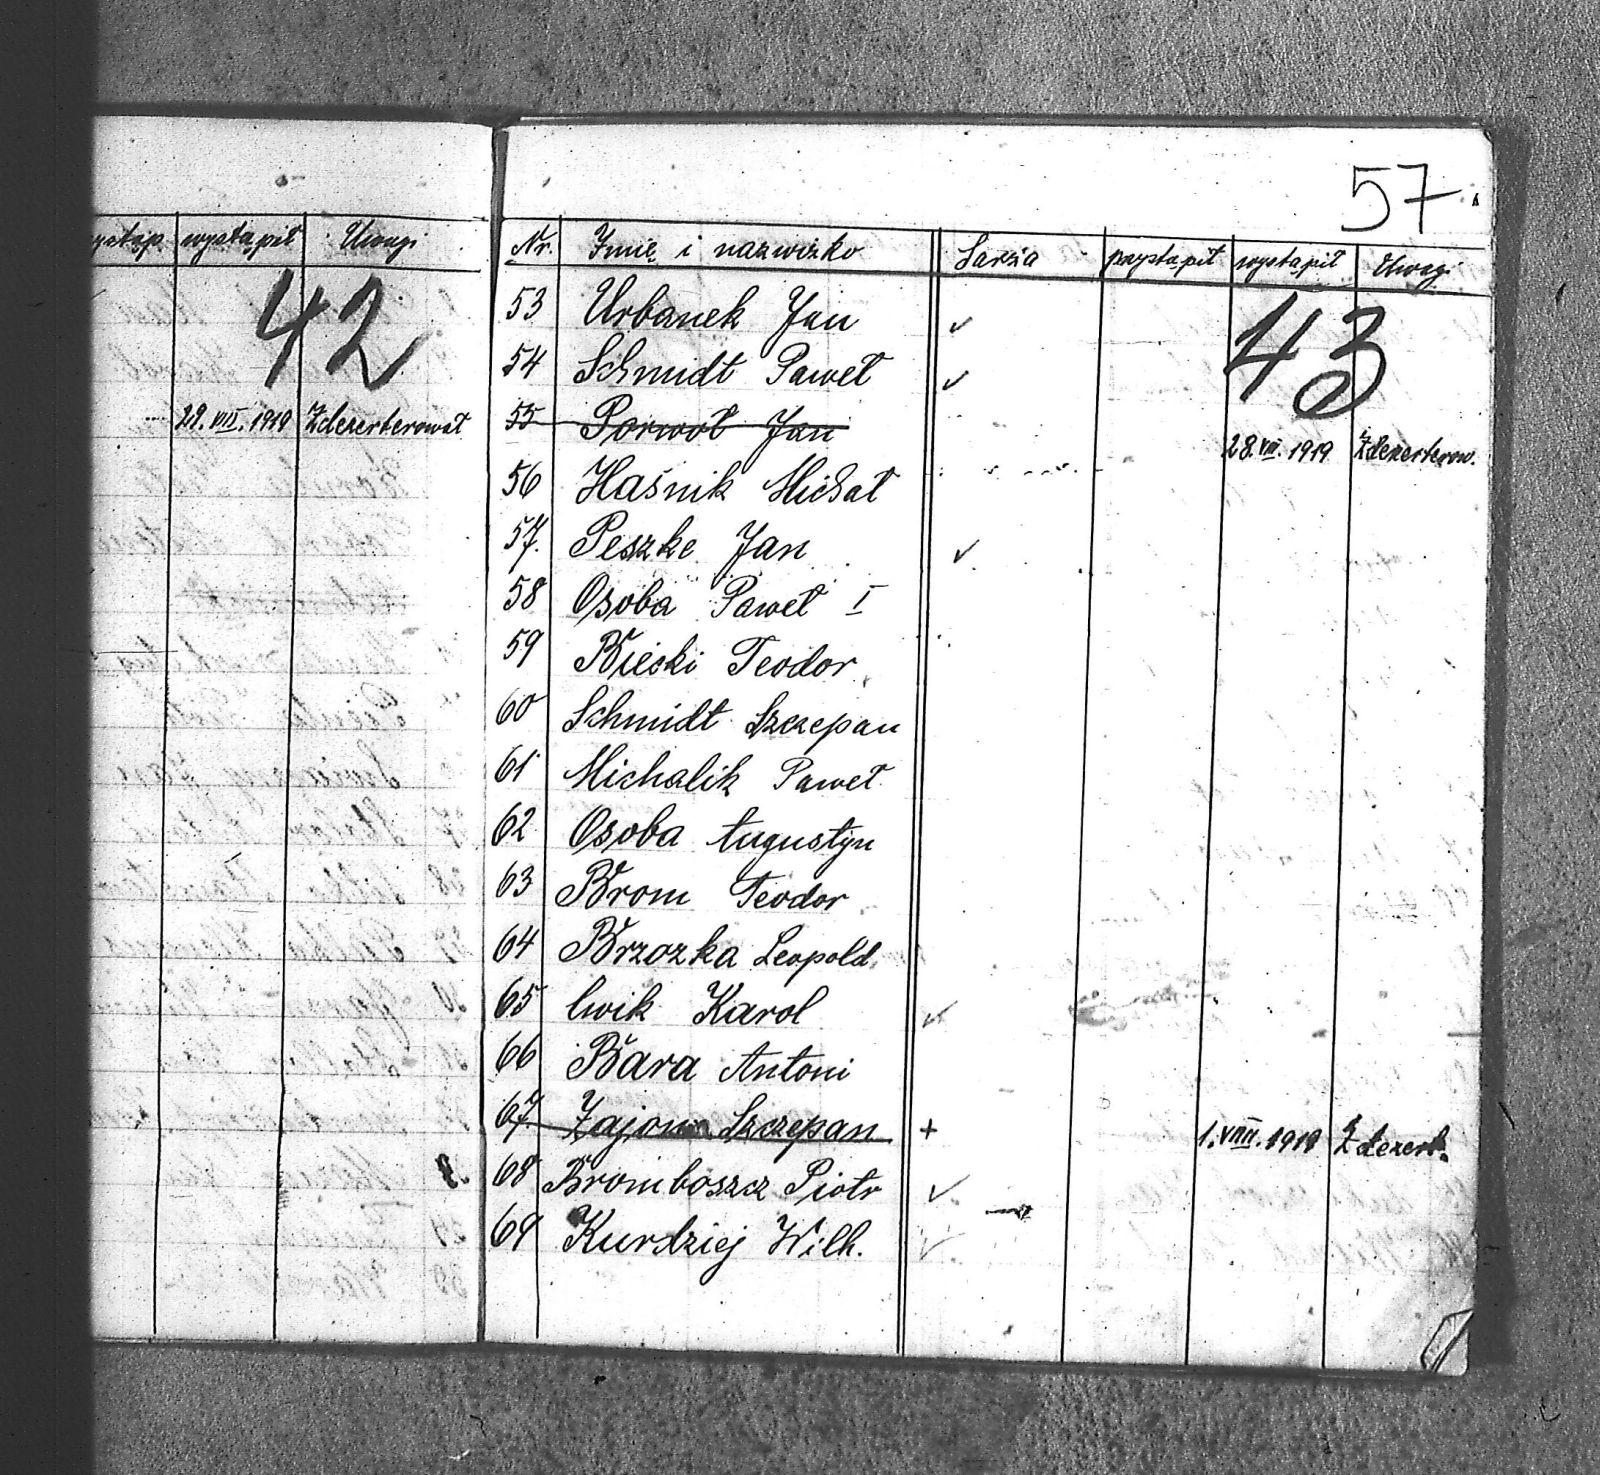 wystąpił Uwagi
42
29. VIII. 1919 Zdezerterował
57.
Nr. Imię i nazwizko Sarża przystąpił wystąpił Uwagi
43
53 Urbanek Jan ✓
54 Schmidt Paweł ✓
55 Porwoł Jan 28. VIII. 1919 Zdezerterow.
56 Haśnik Michał
57. Peszke Jan ✓
58 Osoba Paweł I
59 Bieski Teodor
60 Schmidt Szczepan
61 Michalik Paweł
62 Osoba Augustyn
63 Brom Teodor
64 Brzozka Leopold
65 Cwik Karol ✓
66 Bara Antoni
67. Szczepan + 1. VIII. 1919 Zdezert.
68 Bromboszcz Piotr ✓
69 Kurdziej Wilh. ✓